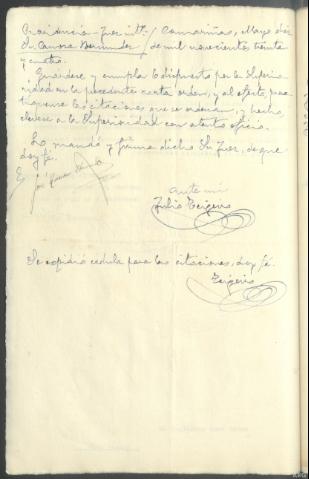 Providencia - Juez intº / Camariñas, Mayo diez
Sr. Canosa Bermudez / de mil novecientos treinta
y cuatro.
Guardese y cumplase lo dispuesto por la Superio-
ridad en la precedente carta orden, y al efecto, prac-
tiquense las citaciones que se ordenan, y hecho
elevese a la Superioridad con atento oficio.
Lo mandó y firma dicho Sr Juez, de que
doy fé.
E/
Ante mi
Julio Teigeiro
Se expidió cedula para las citaciones, doy fé.
Teigeiro